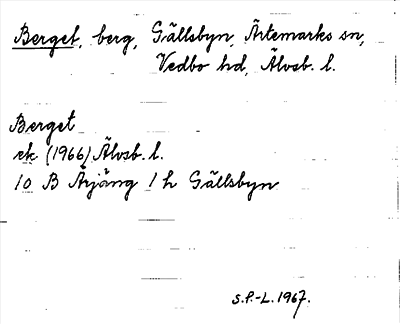 Berget, berg, Gällsbyn, Ärtemarks sn,
Vedbo hd, Älvsb. l.
Berget
ek (1966) Älvsb. l.
10 B Årjäng 1 h Gällsbyn
S.P.-L. 1967.